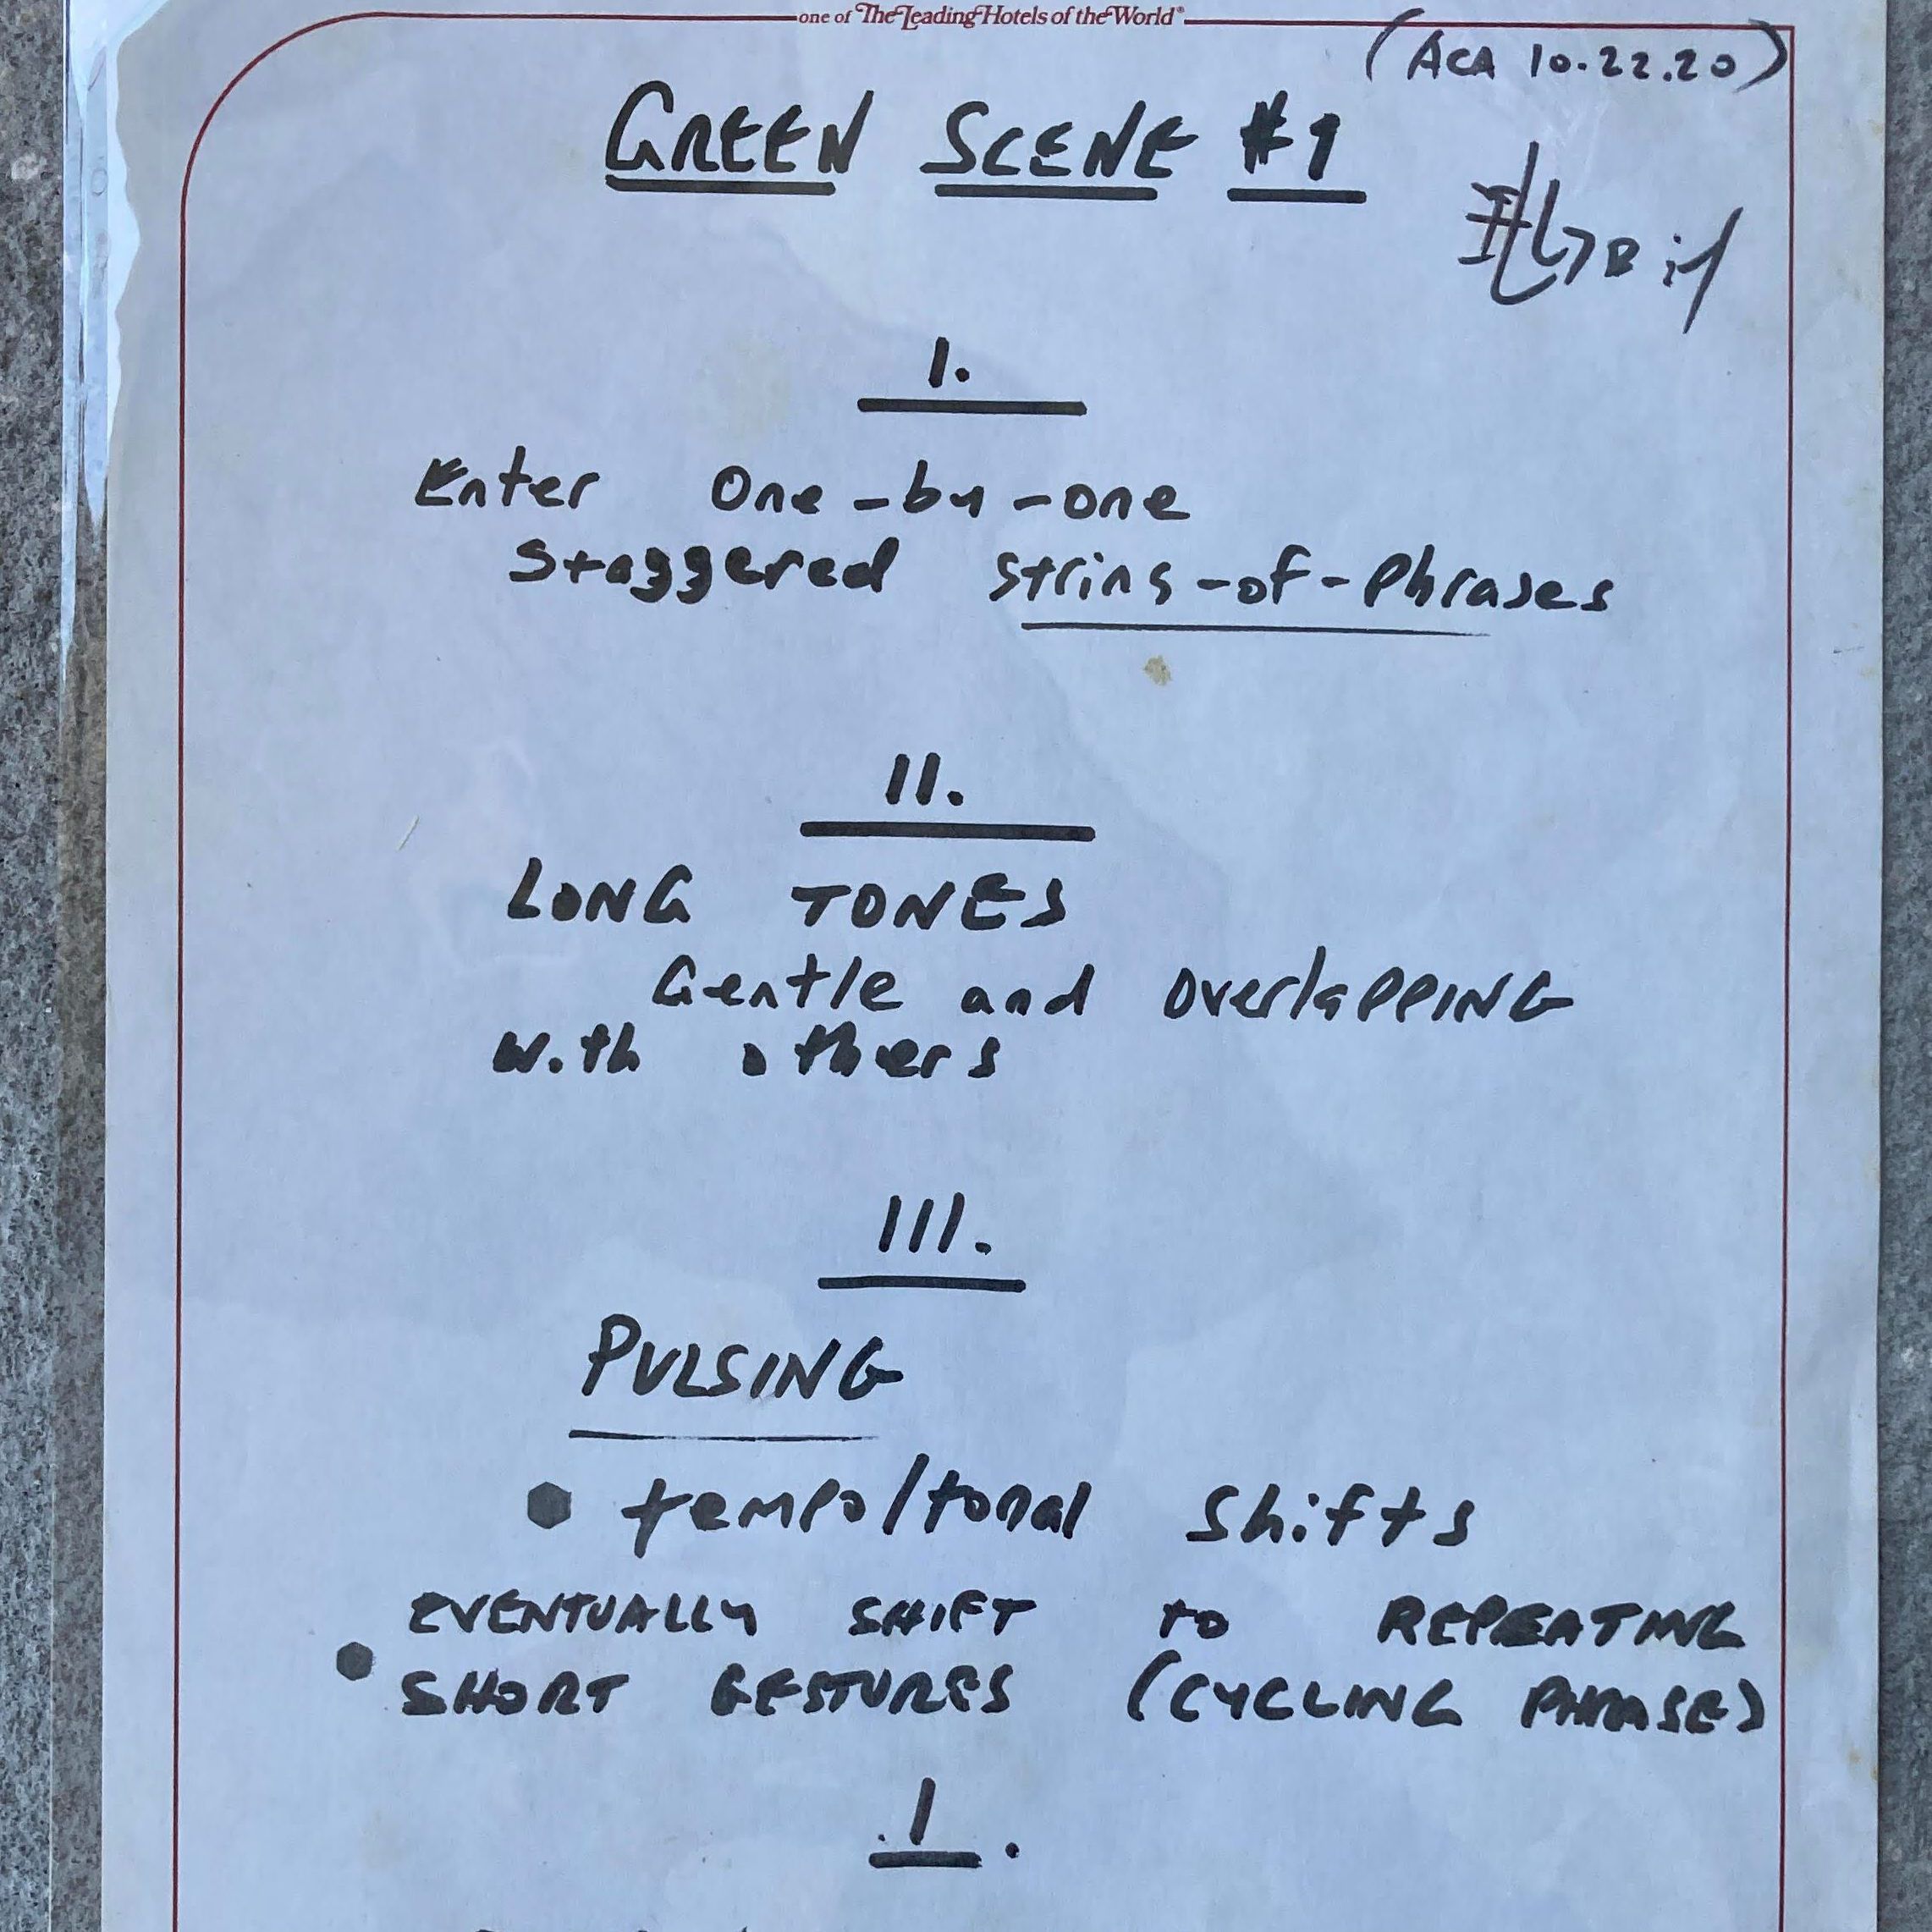 one of The Leading Hotels of the World®
(ACA 10.22.20)
GREEN SCENE #1
I.
Enter One-by-one
Staggered string-of-Phrases
II.
LONG TONES
Gentle and OverlaPPING
with others
III.
PULSING
• tempo/tonal Shifts
EVENTUALLY SHIFT to REPEATING
• SHORT GESTURES (CYCLING PHRASE)
I.